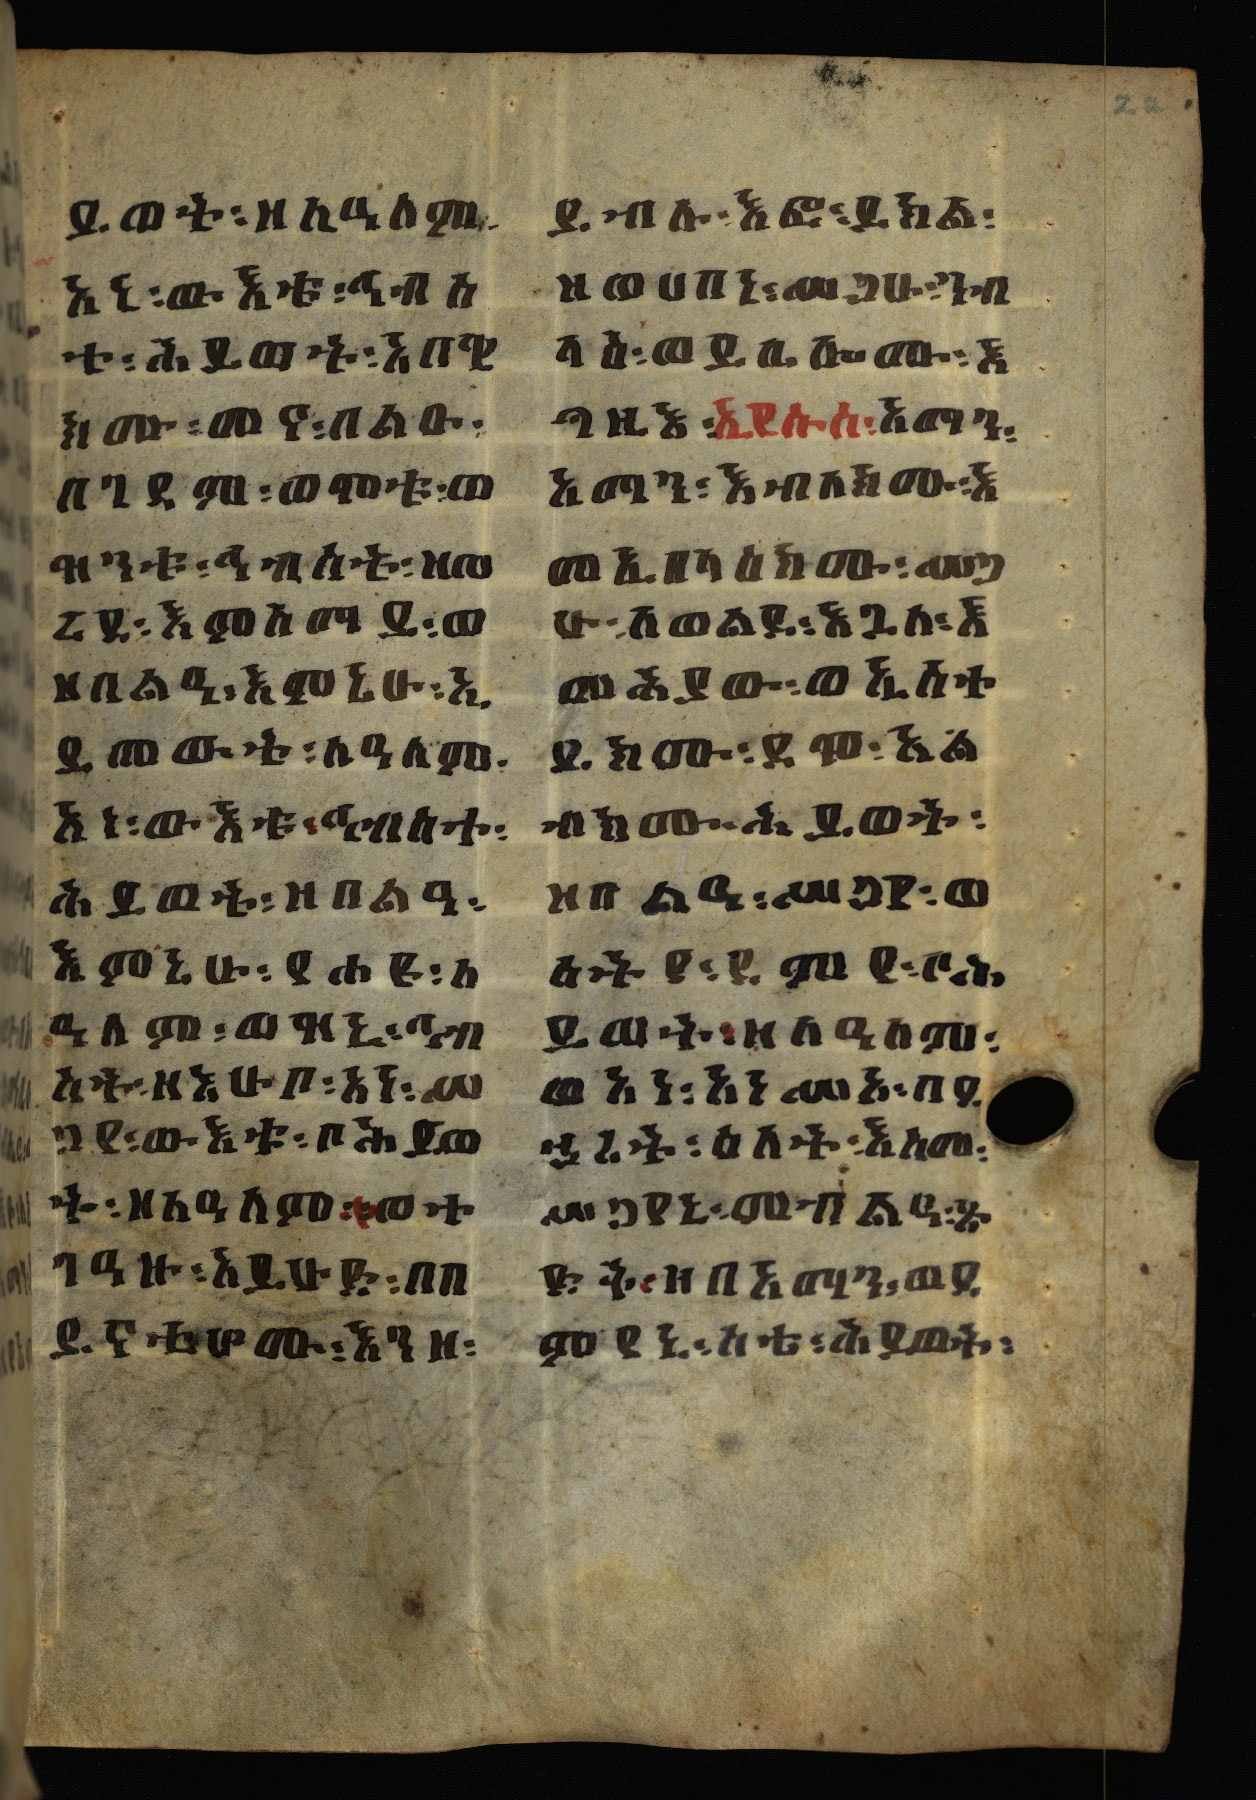 22
ይወት፡ዘለዓለም፡
እነ፡ውእቱ፡ኅብስ
ተ፡ሕይወት፡አበዊ
ክሙ፡መና፡በልዑ፡
በገዳም፡ወሞቱ፡ወ
ዝንቱ፡ኅብስት፡ዘወ
ረደ፡እምሰማይ፡ወ
ዘበልዓ፡እምኔሁ፡ኢ
ይመውት፡ለዓለም፡
አነ፡ውእቱ፡ኅብስተ፡
ሕይወት፡ዘበልዓ፡
እምኔሁ፡የሐዩ፡ለ
ዓለም፡ወዝኒ፡ኅብ
ስት፡ዘእሁቦ፡አነ፡ሥ
ጋየ፡ውእቱ፡በሕይወ
ት፡ዘለዓለም፡ወተ
ጋዓዙ፡አይሁድ፡በበ
ይናቲሆሙ፡እንዘ፡
ይብሉ፡እፎ፡ይክል፡
ዘወሀበነ፡ሥጋሁ፡ንብ
ላዕ፡ወይቤሎሙ፡እ
ግዚእ፡ኢየሱስ፡አማን፡
አማን፡እብለክሙ፡እ
መኢበላዕክሙ፡ሥጋ
ሁ፡ለወልደ፡እጓለ፡እ
መሕያው፡ወኢሰተ
ይክሙ፡ደሞ፡አል
ብክሙ፡ሕይወት፡
ዘበልዓ፡ሥጋየ፡ወ
ሰትየ፡ደምየ፡ቦሕ
ይወት፡ዘለዓለም፡
ወአነ፡አነሥኦ፡በደ
ኃሪት፡ዕለት፡እስመ፡
ሥጋየኒ፡መብልዕ፡ጽ
ድቅ፡ዘበአማን፡ወደ
ምየኒ፡ስቴ፡ሕይወት፡